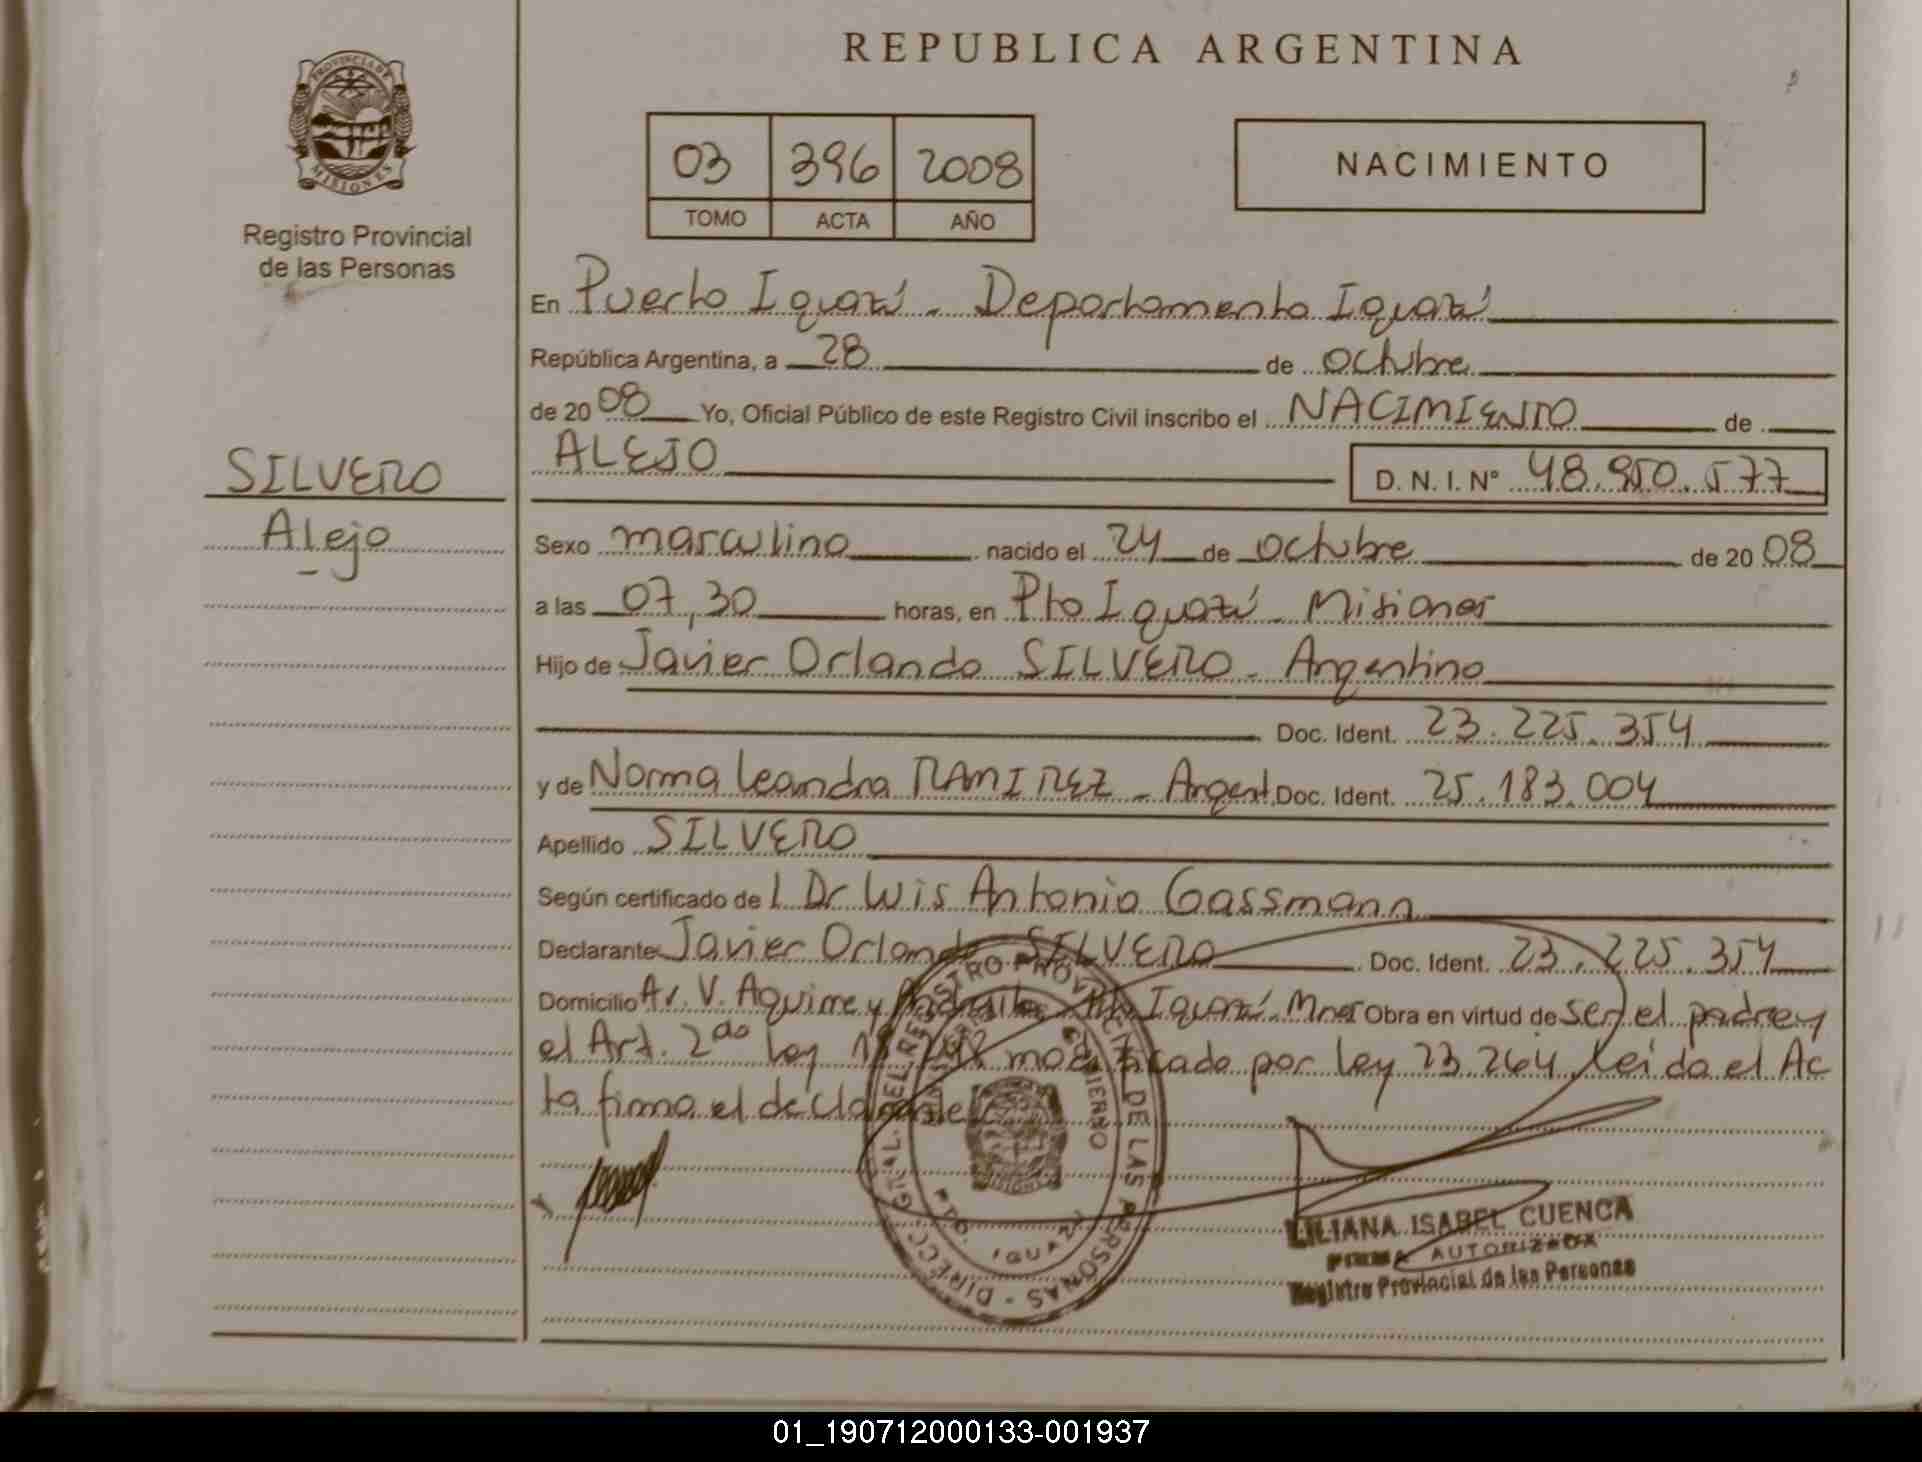 REPUBLICA ARGENTINA
PROVINCIA DE
MISIONES
Registro Provincial
de las Personas
03 396 2008
TOMO ACTA AÑO
NACIMIENTO
En Puerto Iguazú - Departamento Iguazú
República Argentina, a 28 de octubre
de 2008 Yo, Oficial Público de este Registro Civil inscribo el NACIMIENTO de
ALEJO D. N. I. Nº 48.950.577
SILVERO
Alejo
Sexo masculino nacido el 24 de octubre de 2008
a las 07,30 horas, en Pto Iguazú - Misiones
Hijo de Javier Orlando SILVERO - Argentino
Doc. Ident. 23.225.354
y de Norma Leandra RAMIREZ - Argent. Doc. Ident. 25.183.004
Apellido SILVERO
Según certificado de l Dr Luis Antonio Gassmann
Declarante Javier Orlando SILVERO Doc. Ident. 23.225.354
Domicilio Av. V. Aguirre y Pto Iguazú - Mnes Obra en virtud de ser el padre y
el Art. 2do ley modificado por ley 23.264. Leida el Ac
ta firma el declarante
DIRECC. GRAL. DEL REGISTRO PROVINCIAL DE LAS PERSONAS
MINISTERIO DE GOBIERNO
MISIONES
PTO. IGUAZU
LILIANA ISABEL CUENCA
FIRMA AUTORIZADA
Registro Provincial de las Personas
01_190712000133-001937